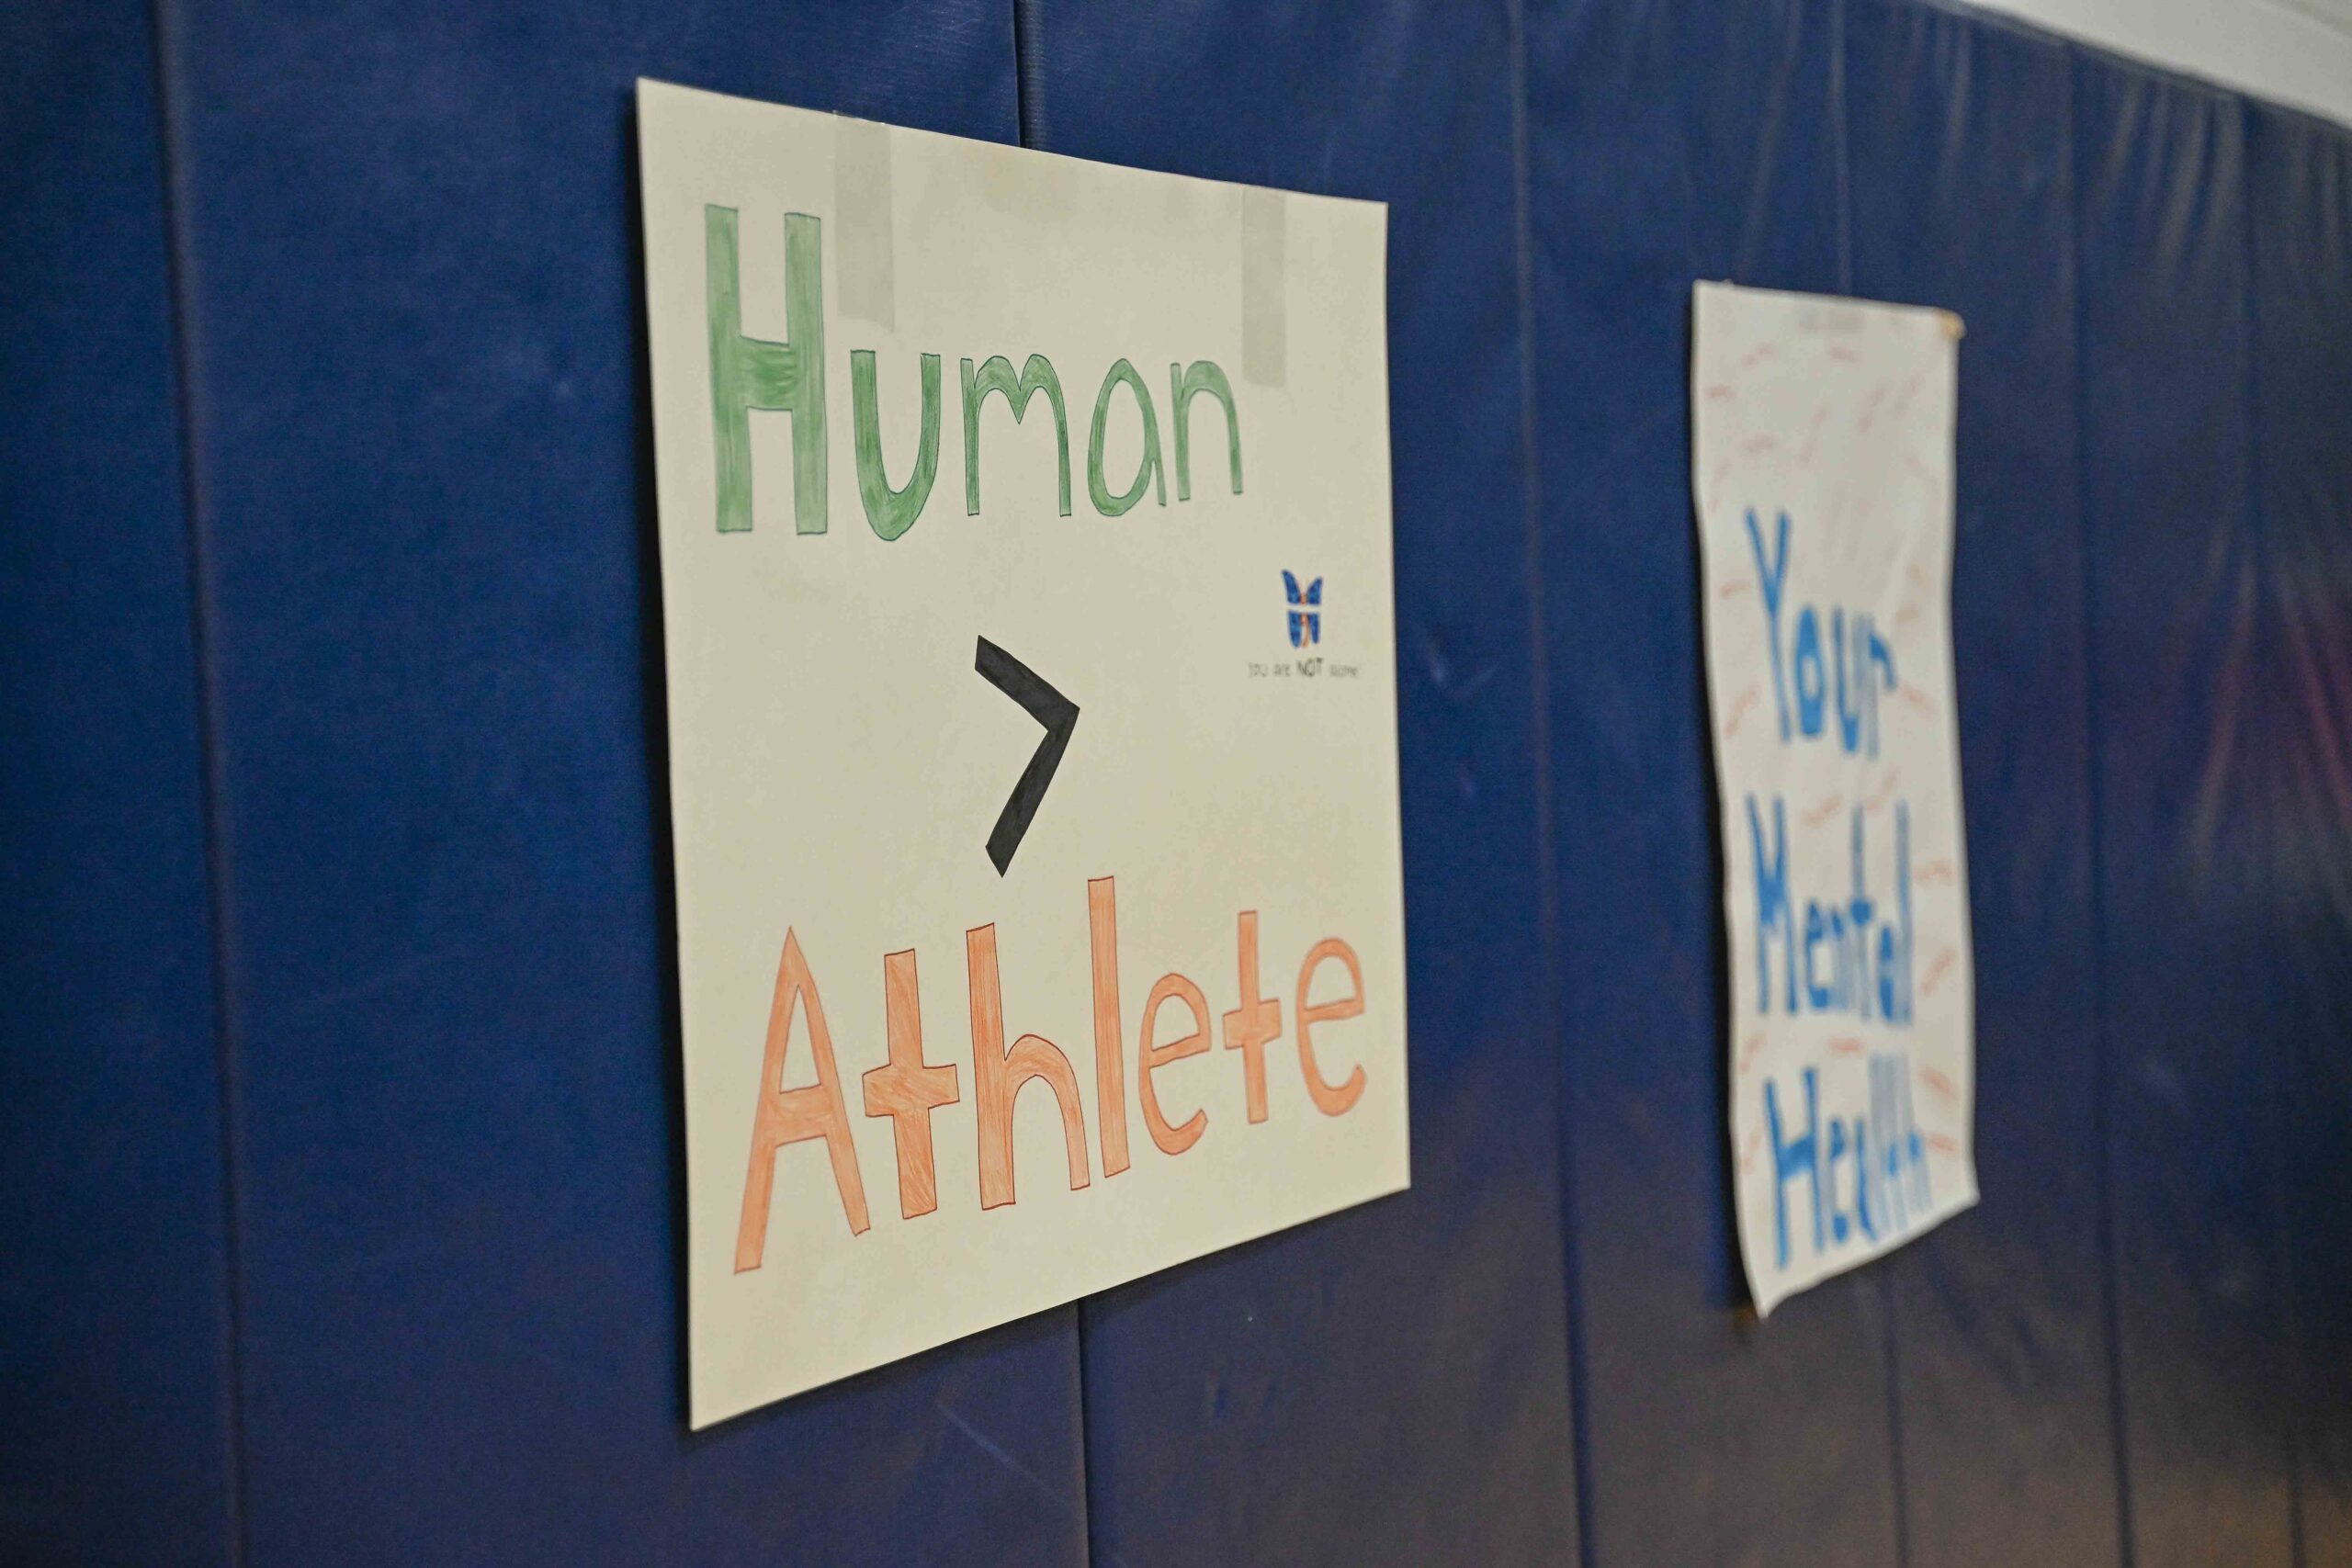 Human
>
Athlete
You are NOT alone!
Your
Mental
Health